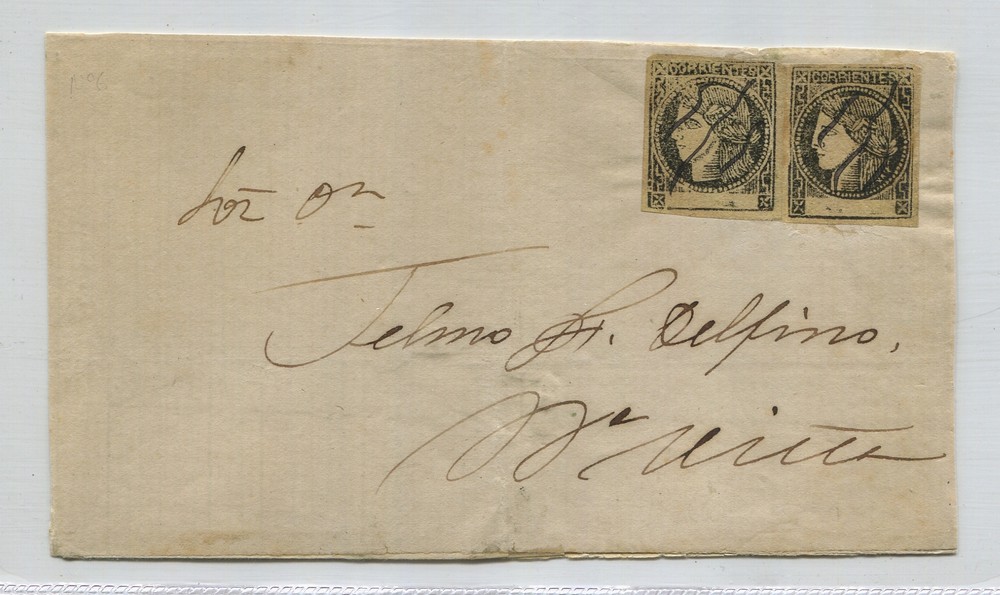 Nº 6
CORRIENTES CORRIENTES
Sor Dn
Telmo F. Delfino,
Bª Vista